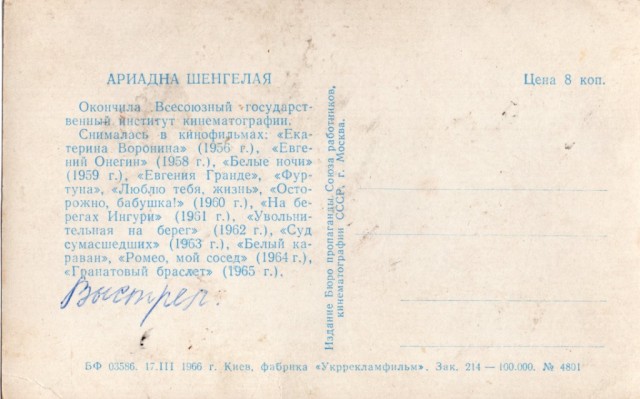 АРИАДНА ШЕНГЕЛАЯ
Окончила Всесоюзный государст-
венный институт кинематографии.
Снималась в кинофильмах: «Ека-
терина Воронина» (1956 г.), «Евге-
ний Онегин» (1958 г.), «Белые ночи»
(1959 г.), «Евгения Гранде», «Фор-
туна», «Люблю тебя, жизнь», «Осто-
рожно, бабушка!» (1960 г.), «На бе-
регах Ингури» (1961 г.), «Увольни-
тельная на берег» (1962 г.), «Суд
сумасшедших» (1963 г.), «Белый ка-
раван», «Ромео, мой сосед» (1964 г.),
«Гранатовый браслет» (1965 г.).
Выстрел.
Издание Бюро пропаганды. Союза работников,
кинематографии СССР, г. Москва.
Цена 8 коп.
БФ 03586. 17.III 1966 г. Киев, фабрика «Укррекламфильм». Зак. 214 — 100.000. № 4801